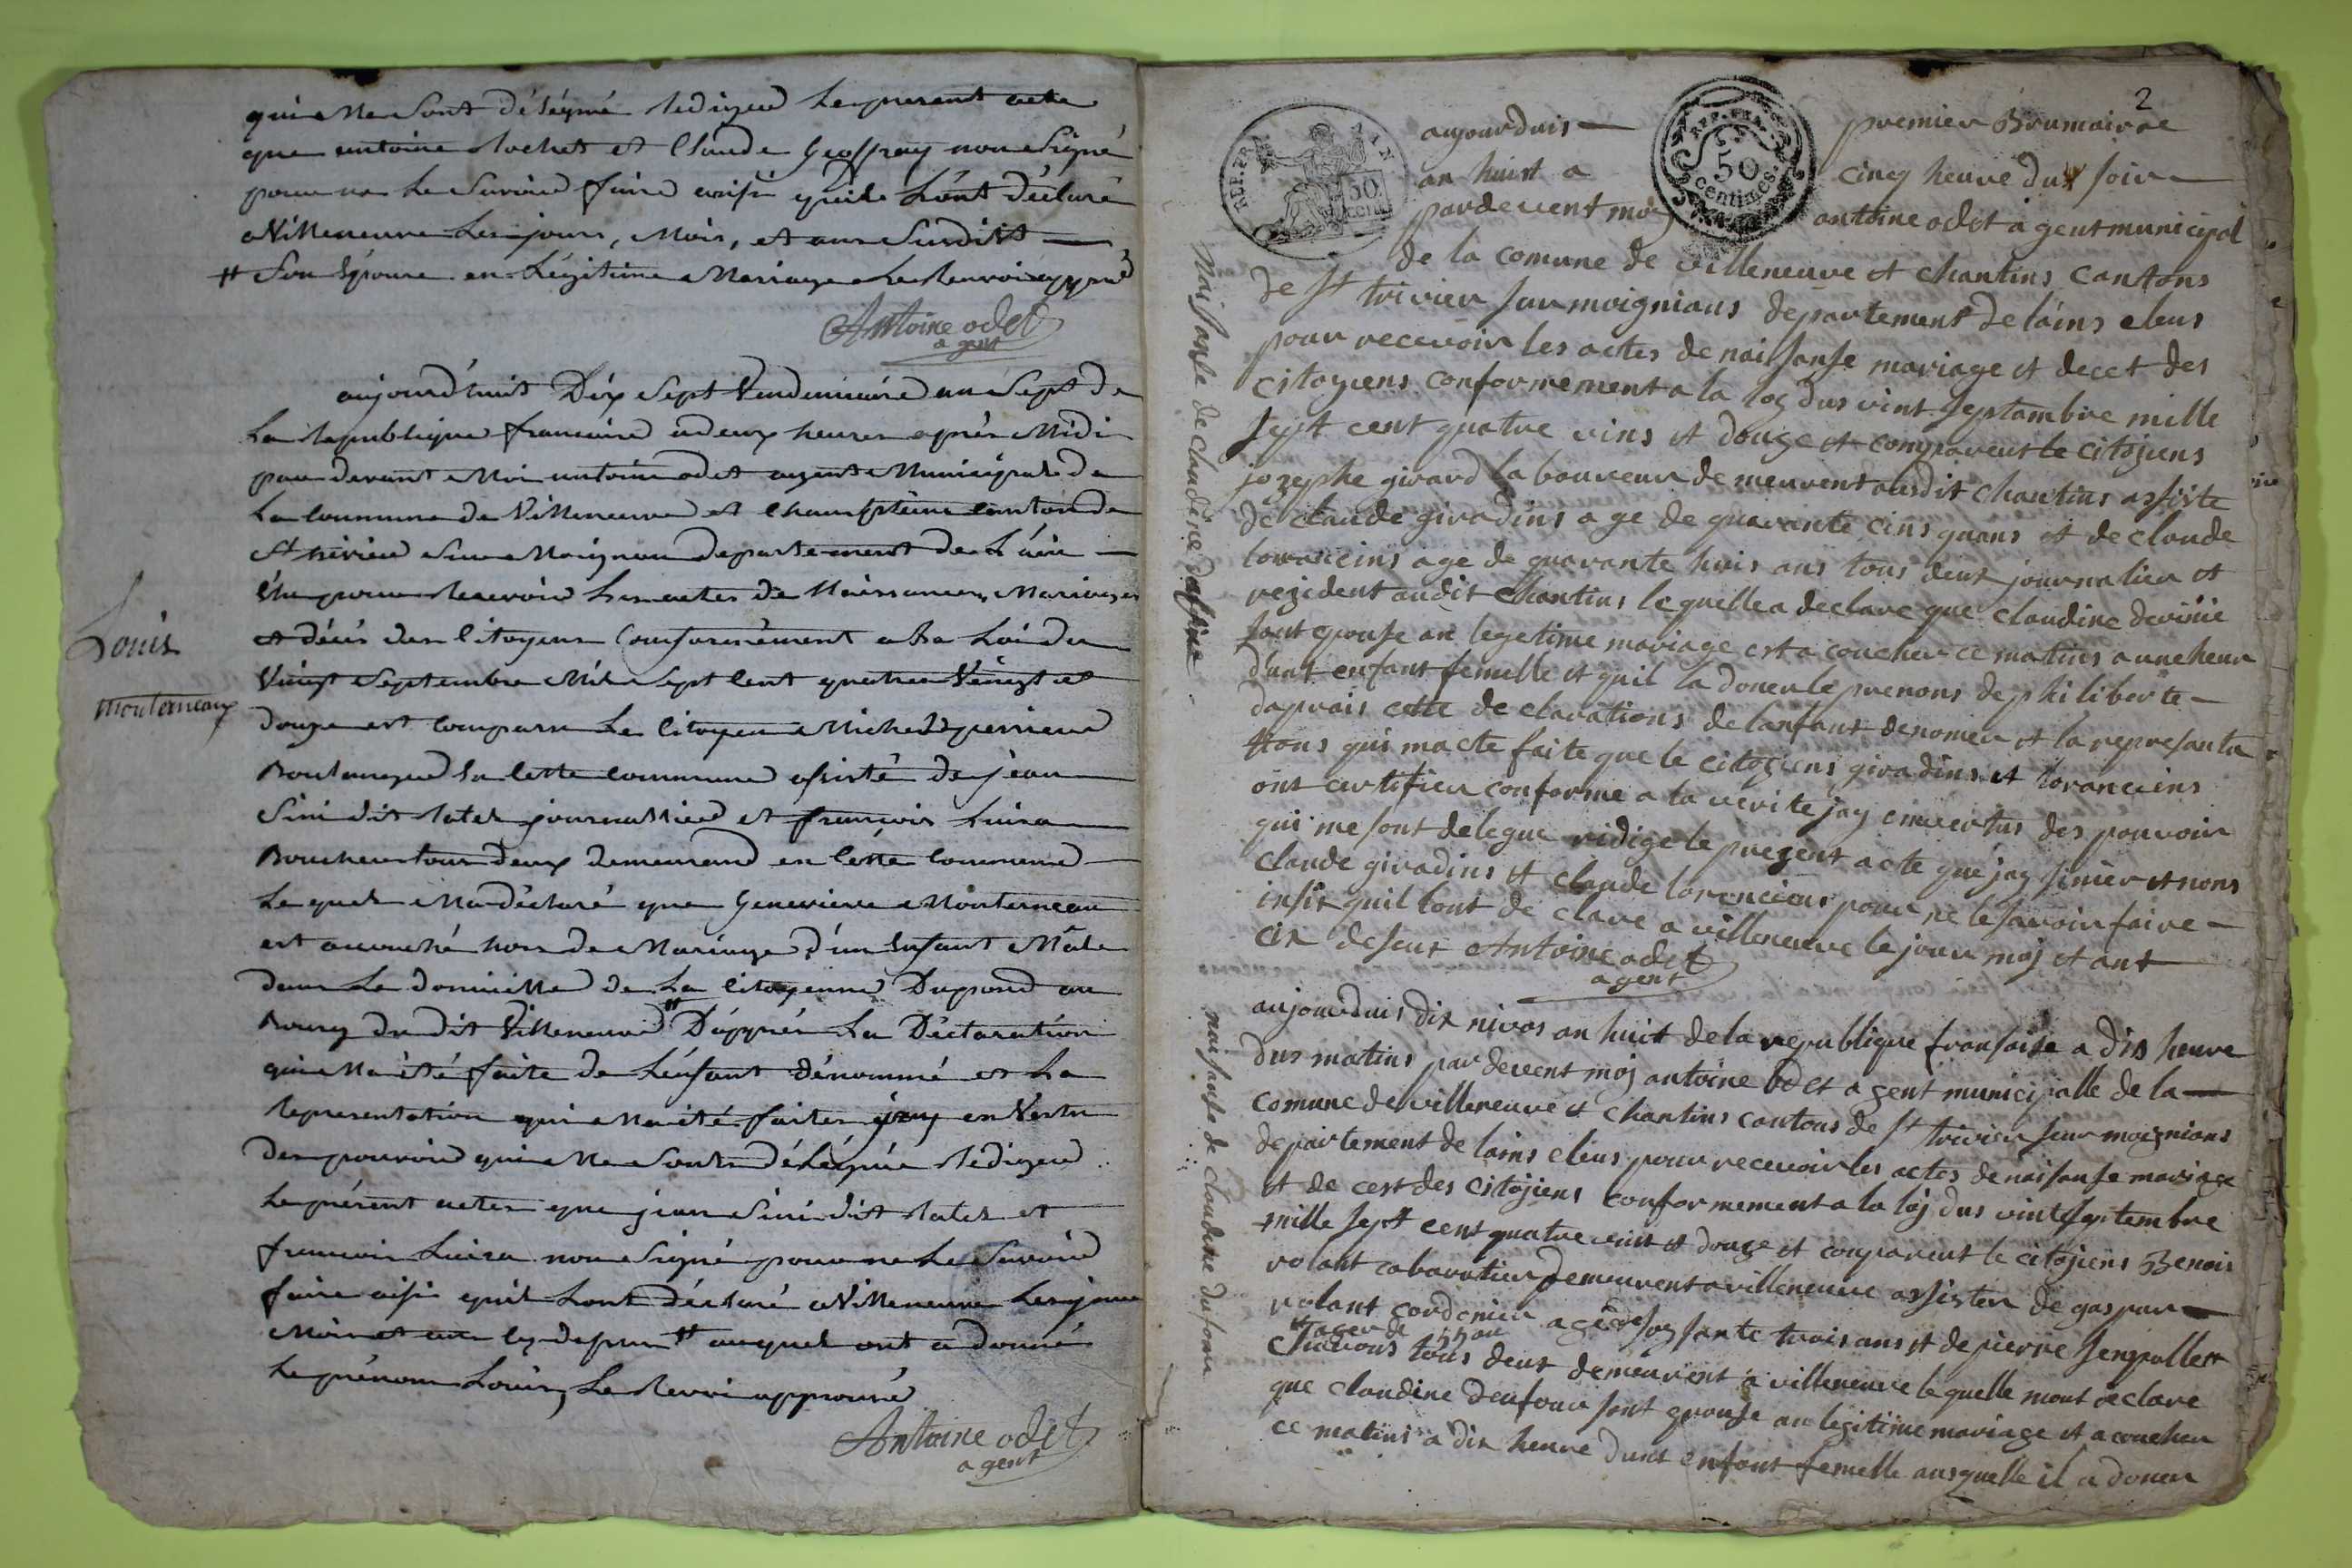 qui me sont délégué rédigeu le present acte
que antoine rochet et Claude Geoffray non Signé
pour ne le Savoire faire aisi quils l'ont déclaré
a Villeneuve les jours, Mois, et ans Susdits
# Son Epouse en légitime Mariage le renvoi approuvé
Antoine odet
agent
aujourd'huit Dix Sept Vendemiaire an Sept de
la republique francaise a deux heures après Midi
par devant Moi antoine odet agent Municipal de
la Commune de Villeneuve et Chaneins Canton de
St trivier Sur Moignan departement de L'ain
élu pour recevoir les actes de Naissances, Mariages
et décés des Citoyens Conformément a La Loi du
Vingt Septembre Mil Sept Cent quatre Vingt et
douze est comparu Le Citoyen Michel perrieux
Boulanger en Cette Commune assisté de jean
Sini dit latel journallier et francois
Boucher tous deux demeurand en Cette Commune
Lequel Ma déclaré que Genevieve Monterneau
est accouché hors de Mariage d'un Enfant Mâle
dans Le domicille de La Citoyenne Dupond au
Bourg du dit Villeneuve # D'appres La Déclaration
qui Ma été faite de L'enfant dénommé et La
representation qui Ma été faites jay en Vertu
des pouvoir qui Me Sont Délégué rédigeu
Le présent acte que jean Sini dit latel et
francois non Signé pour ne Le Savoire
faire aisi quil Lont Déclaré a Villeneuve Les jour
Mois et ans cy dessus # auquel ont a donné
Le prénom Louis, Le renvoi approuvé
Antoine odet
agent
Louis
Monterneaux
2
REP. FRA.
50
centimes
aujourduis premier Brumairre
an huist a cinq heure du soire
pardevent moj antoine odet agent municipal
de la comune de villeneuve et chantins cantons
de St trivier sur moignians departement de lains eleus
pour recevoir les actes de naissanse mariage et decet des
citoyens conformement a la loy dus vint septambre mille
sept cent quatre vins et douze et comparent le citojens
jozephe girard laboureur demeurent audit chantins assiste
de claude giradins age de quarante cins quans et de claude
loranceins age de quarante huis ans tous deux journalier et
rezident audit chantins lequelle a declare que claudine
sont epouse an legetime mariage est a coucher ce matins a une heur
dunt enfant femelle et quil la doner le prenons de philiberte
daprais cette declarations de lanfant denomer et la represanta
tions qui macte faite que le citoyens giradins et loranceins
ont certifier conforme a la verite jay enuertus des pouvoir
qui me sont delegue ridige le prezent acte que jay sinier et nons
claude giradins et claude loranceins pour ne le savoir faire
insis quil lont declare a villeneuve le jour moj et ant
cis deseut Antoine odet
agent
aujourduis dix nivos an huit de la republique fransaise a dis heure
dus matins par devent moj antoine odet agent municipalle de la
comune de villeneuve et chantins cantons de St trivier sur moignians
departement de lains eleus pour recevoir les actes de naisanse mariage
et decest des citojiens conformement a la loj dus vint septembre
mille sept cent quatre vint et douze et comparent le citojiens Benois
volant cabaratier demeurent a villeneuve assister de gaspar
volant cordonier age de soysante trois ans et de pierre
et ager de 55 an
chavons tous deux demeurent a villeneuve lequelle mont declare
que claudine dufour sont epouse an legitime mariage et a coucher
ce matins a dix heure dunt enfant femelle ausquelle il a doner
naisanse de claudine
naisanse de claudine dufour